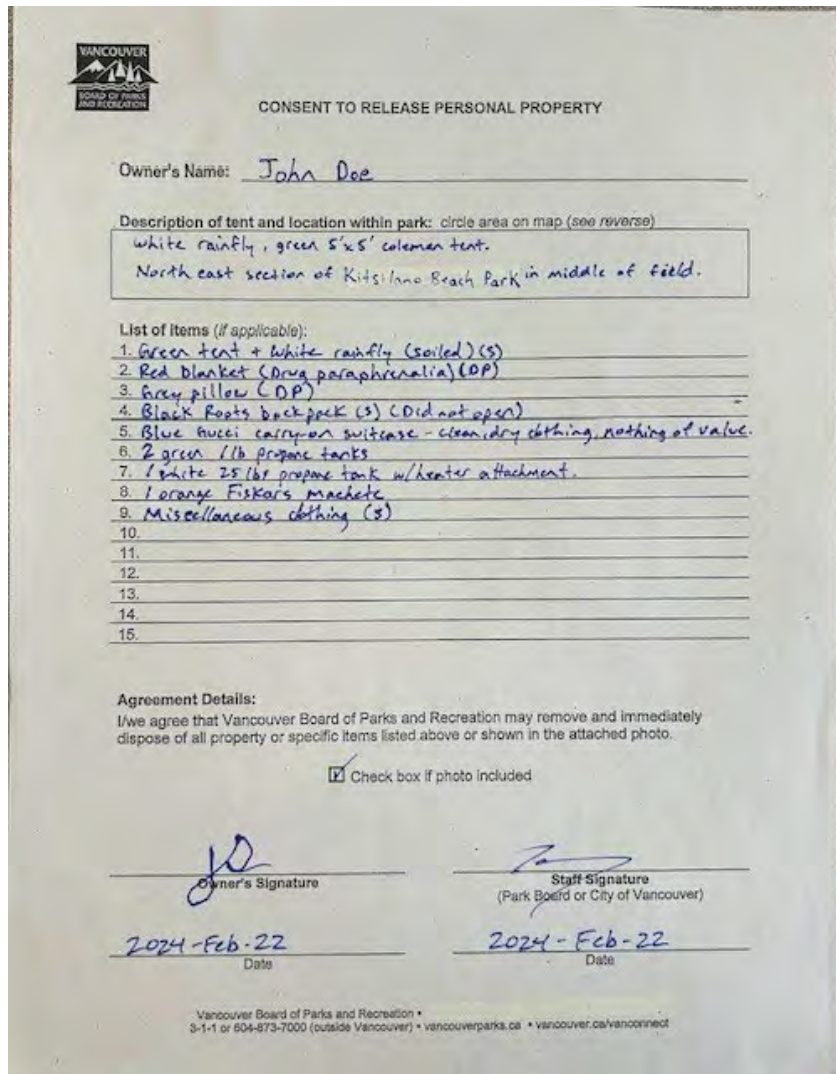 VANCOUVER
BOARD OF PARKS
AND RECREATION
CONSENT TO RELEASE PERSONAL PROPERTY
Owner's Name: John Doe
Description of tent and location within park: circle area on map (see reverse)
White rainfly, green 5'x5' coleman tent.
North east section of Kitsilano Beach Park in middle of field.
List of Items (if applicable):
1. Green tent + White rainfly (soiled) (S)
2. Red blanket (Drug paraphrenalia) (DP)
3. Grey pillow (DP)
4. Black Roots backpack (S) (Did not open)
5. Blue Gucci carry-on suitcase - clean, dry clothing, nothing of value.
6. 2 green 1lb propane tanks
7. 1 white 25 lbs propane tank w/heater attachment.
8. 1 orange Fiskars machete
9. Miscellaneous clothing (S)
10.
11.
12.
13.
14.
15.
Agreement Details:
I/we agree that Vancouver Board of Parks and Recreation may remove and immediately
dispose of all property or specific items listed above or shown in the attached photo.
Check box if photo included
JD
Owner's Signature
Staff Signature
(Park Board or City of Vancouver)
2024-Feb-22
Date
2024-Feb-22
Date
Vancouver Board of Parks and Recreation •
3-1-1 or 604-873-7000 (outside Vancouver) • vancouverparks.ca • vancouver.ca/vanconnect